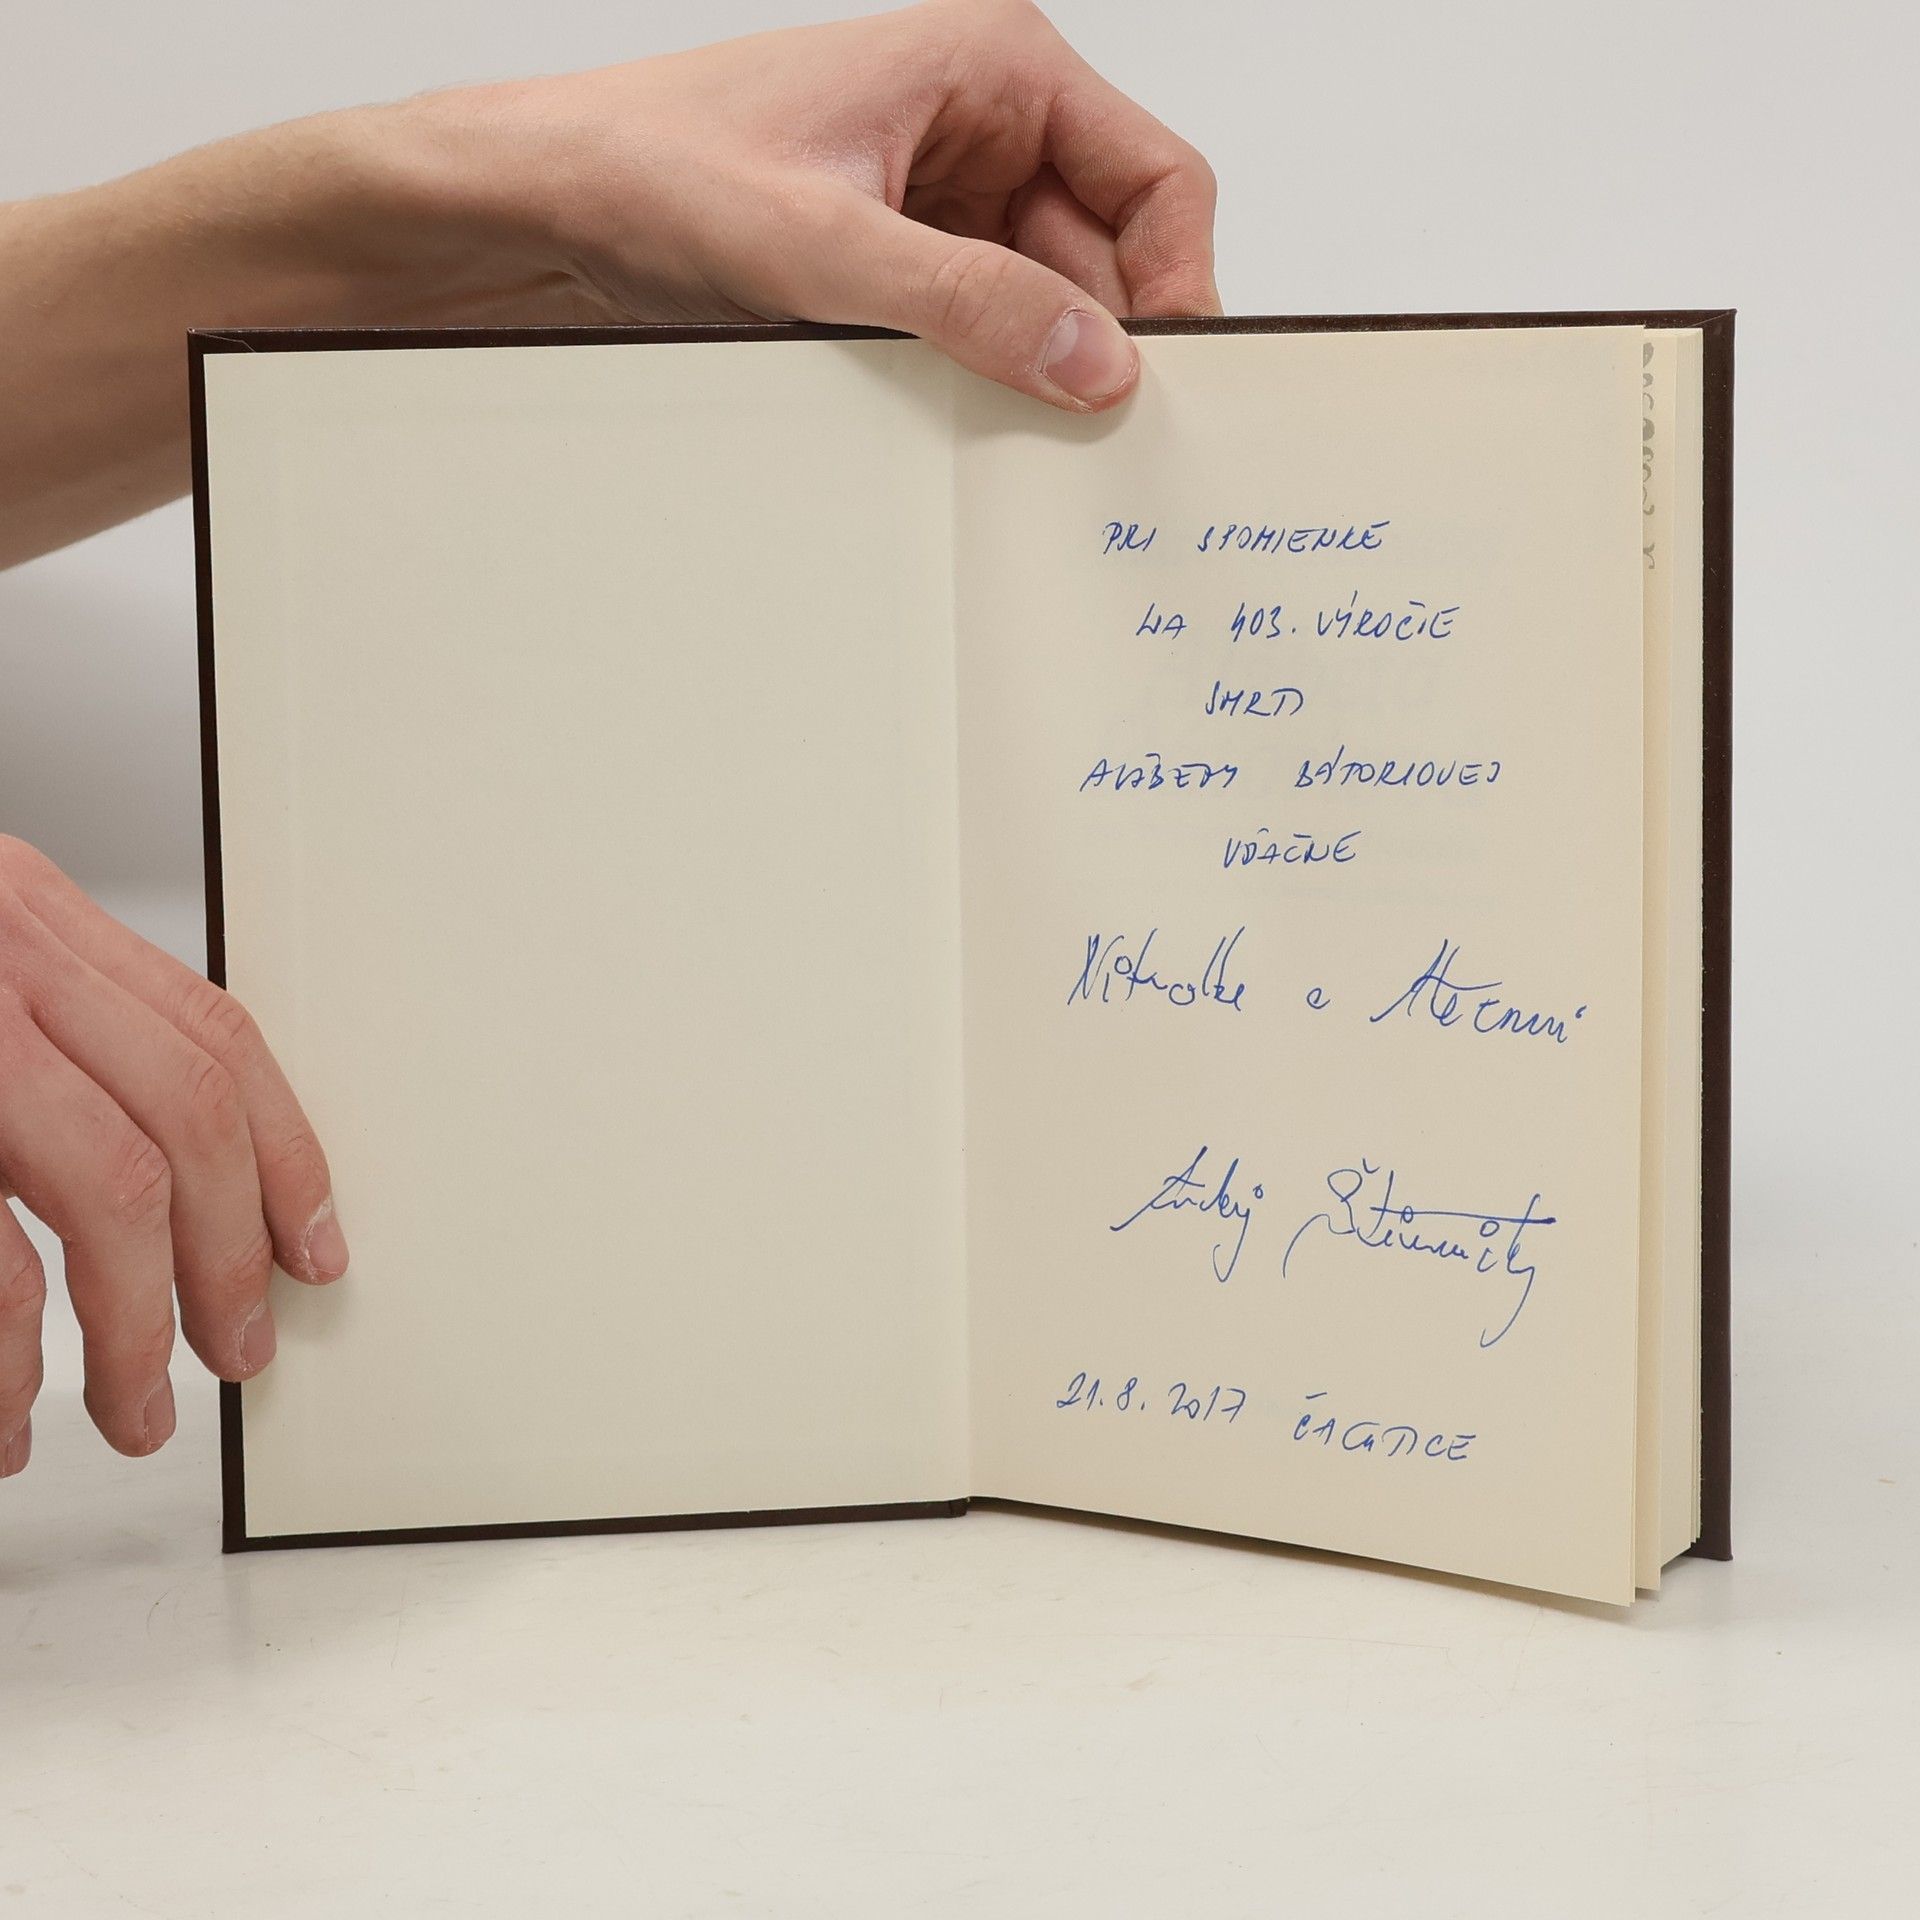 PRI SPOMIENKE
NA 403. VÝROČIE
SMRTI
ALŽBETY BÁTORIOVEJ
VĎAČNE
a
Andrej Štiavnický
21.8.2017 ČACHTICE